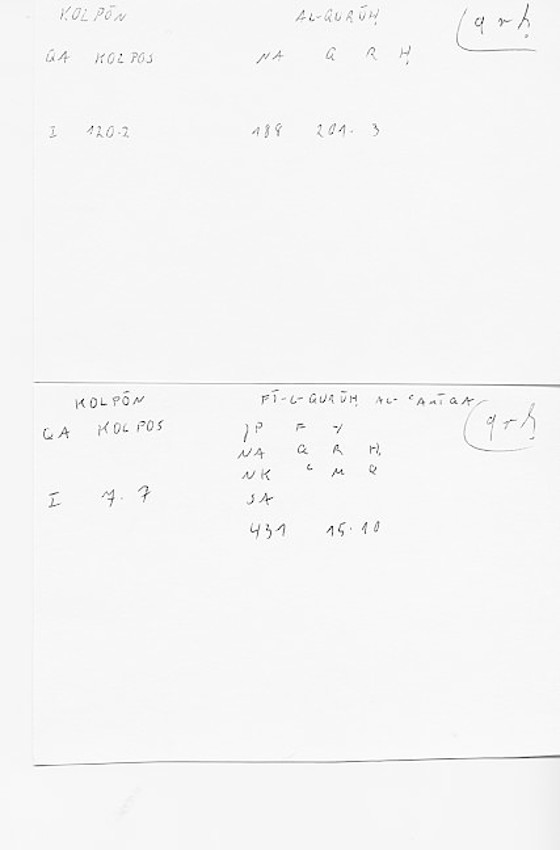 KOLPŌN AL-QURŪḤ qrḥ
QA KOLPOS NA Q R Ḥ
I 120.2 188 201. 3
KOLPŌN FĪ-L-QURŪḤ AL-ʿAMĪQA qrḥ
QA KOLPOS JP F Y
NA Q R Ḥ
NK ʿ M Q
I 7. 7 SA
431 15.10